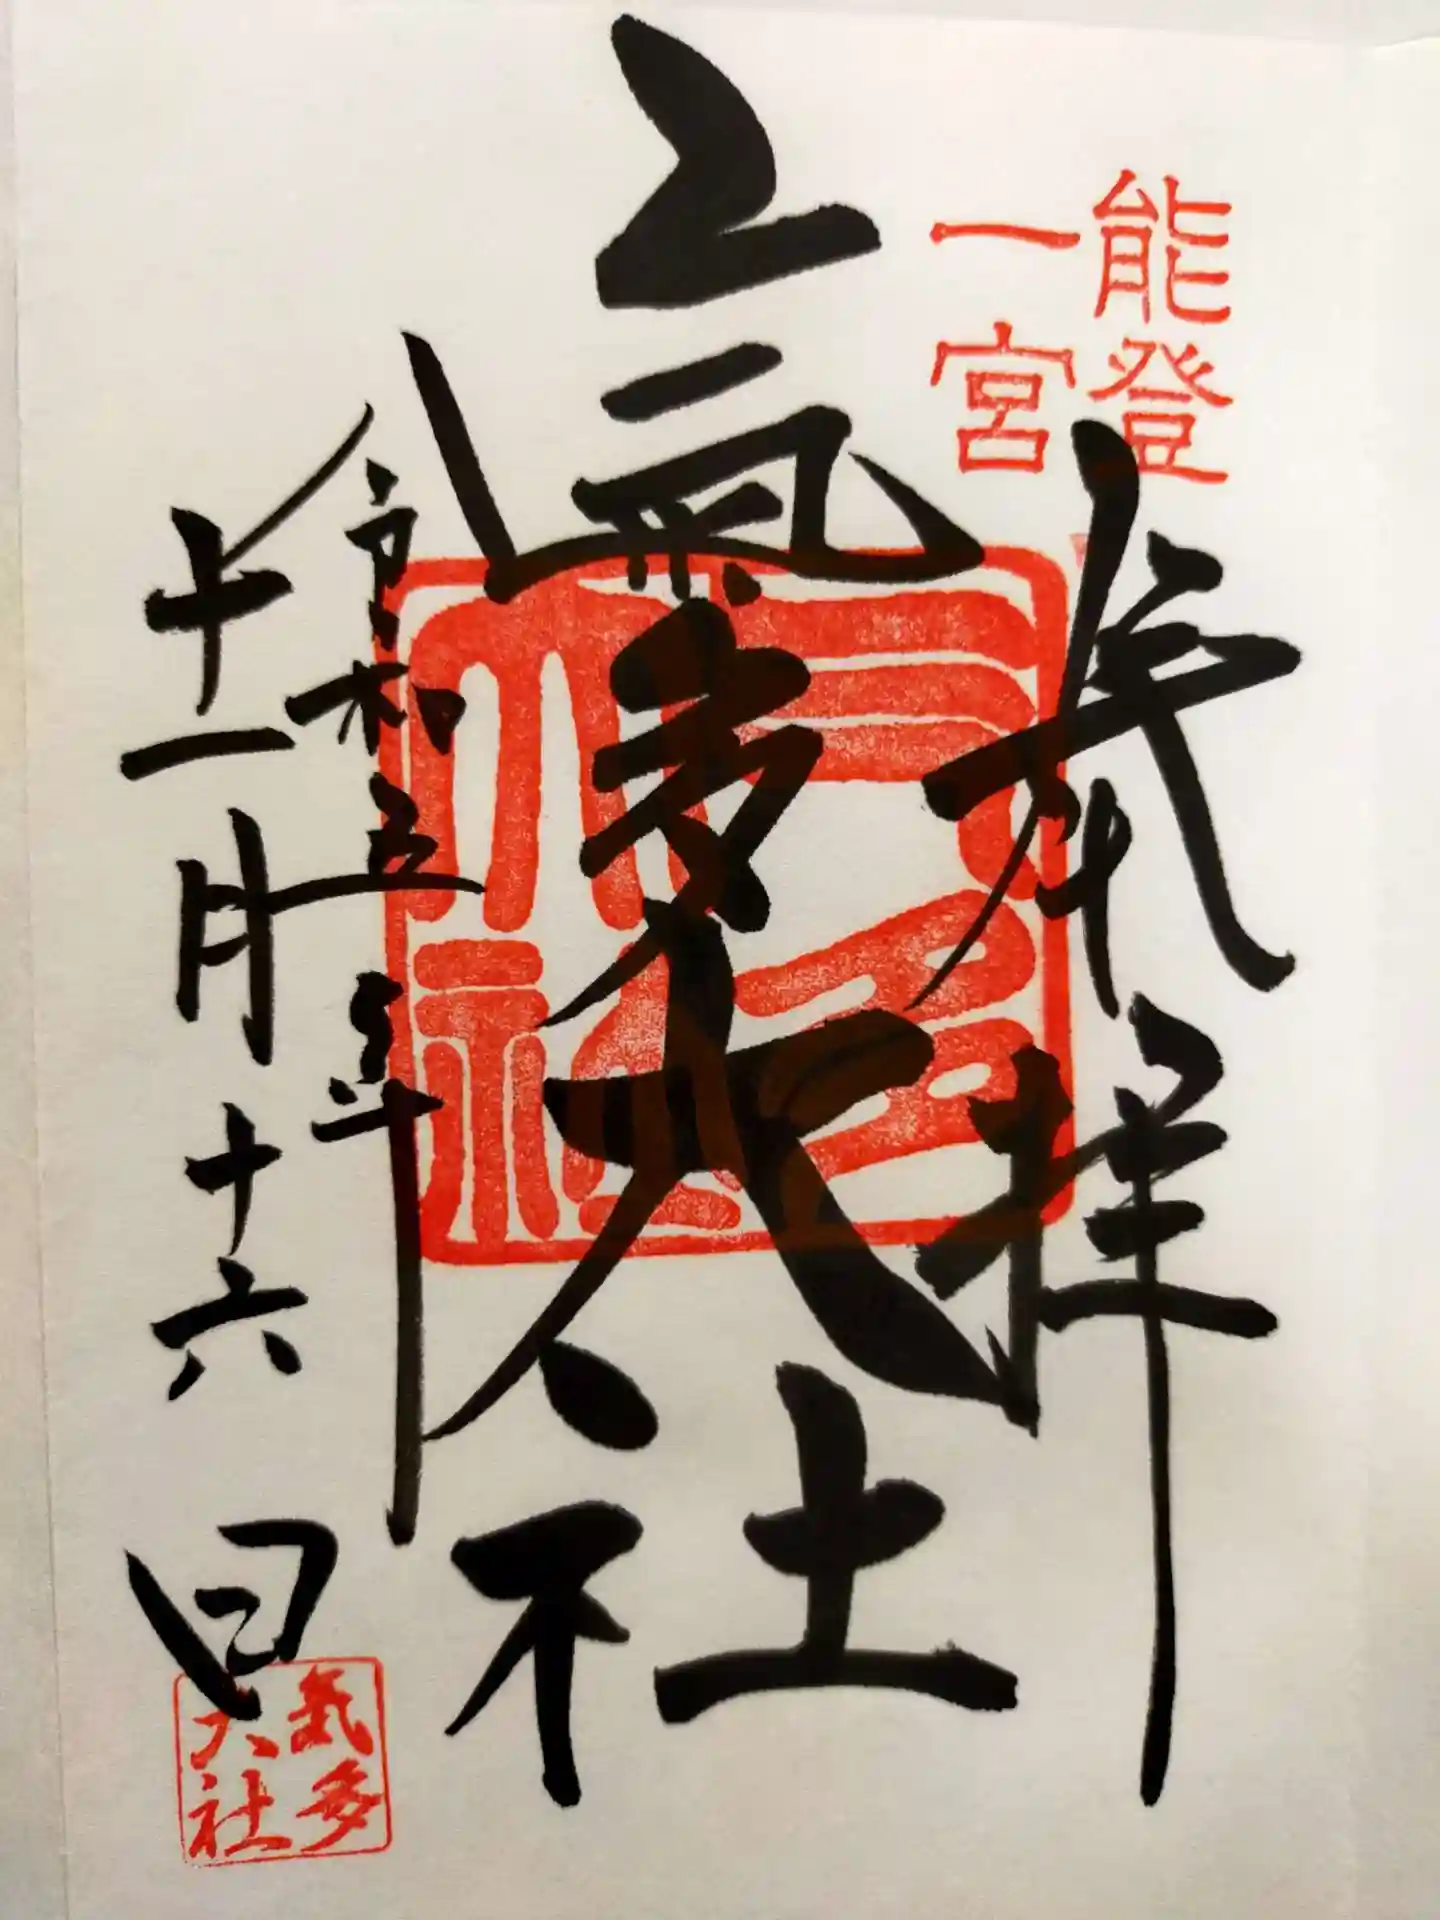 能登
一宮
奉拝
氣多大社
令和五年
十一月十六日
氣多
大社
氣多
大社